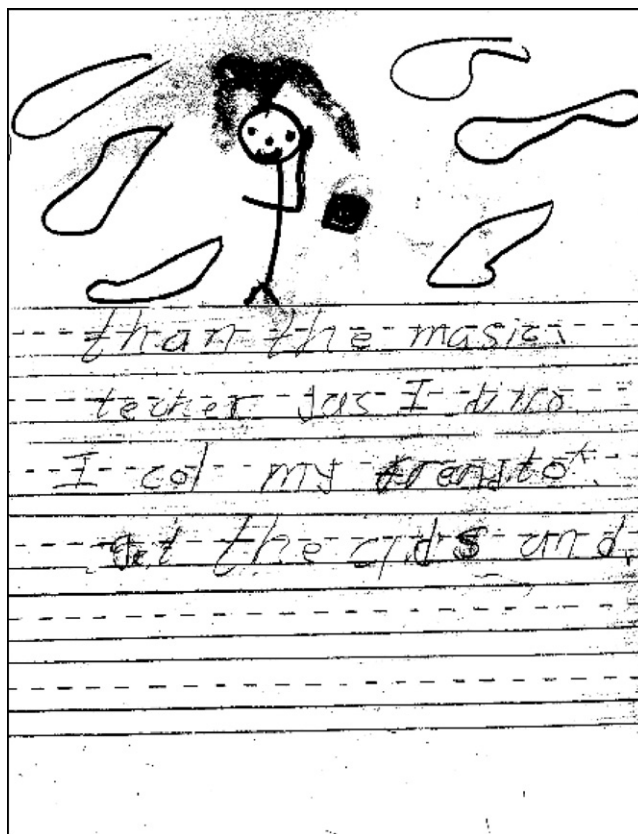 than the masic
techer jus I
I col my frend to
get the cids and